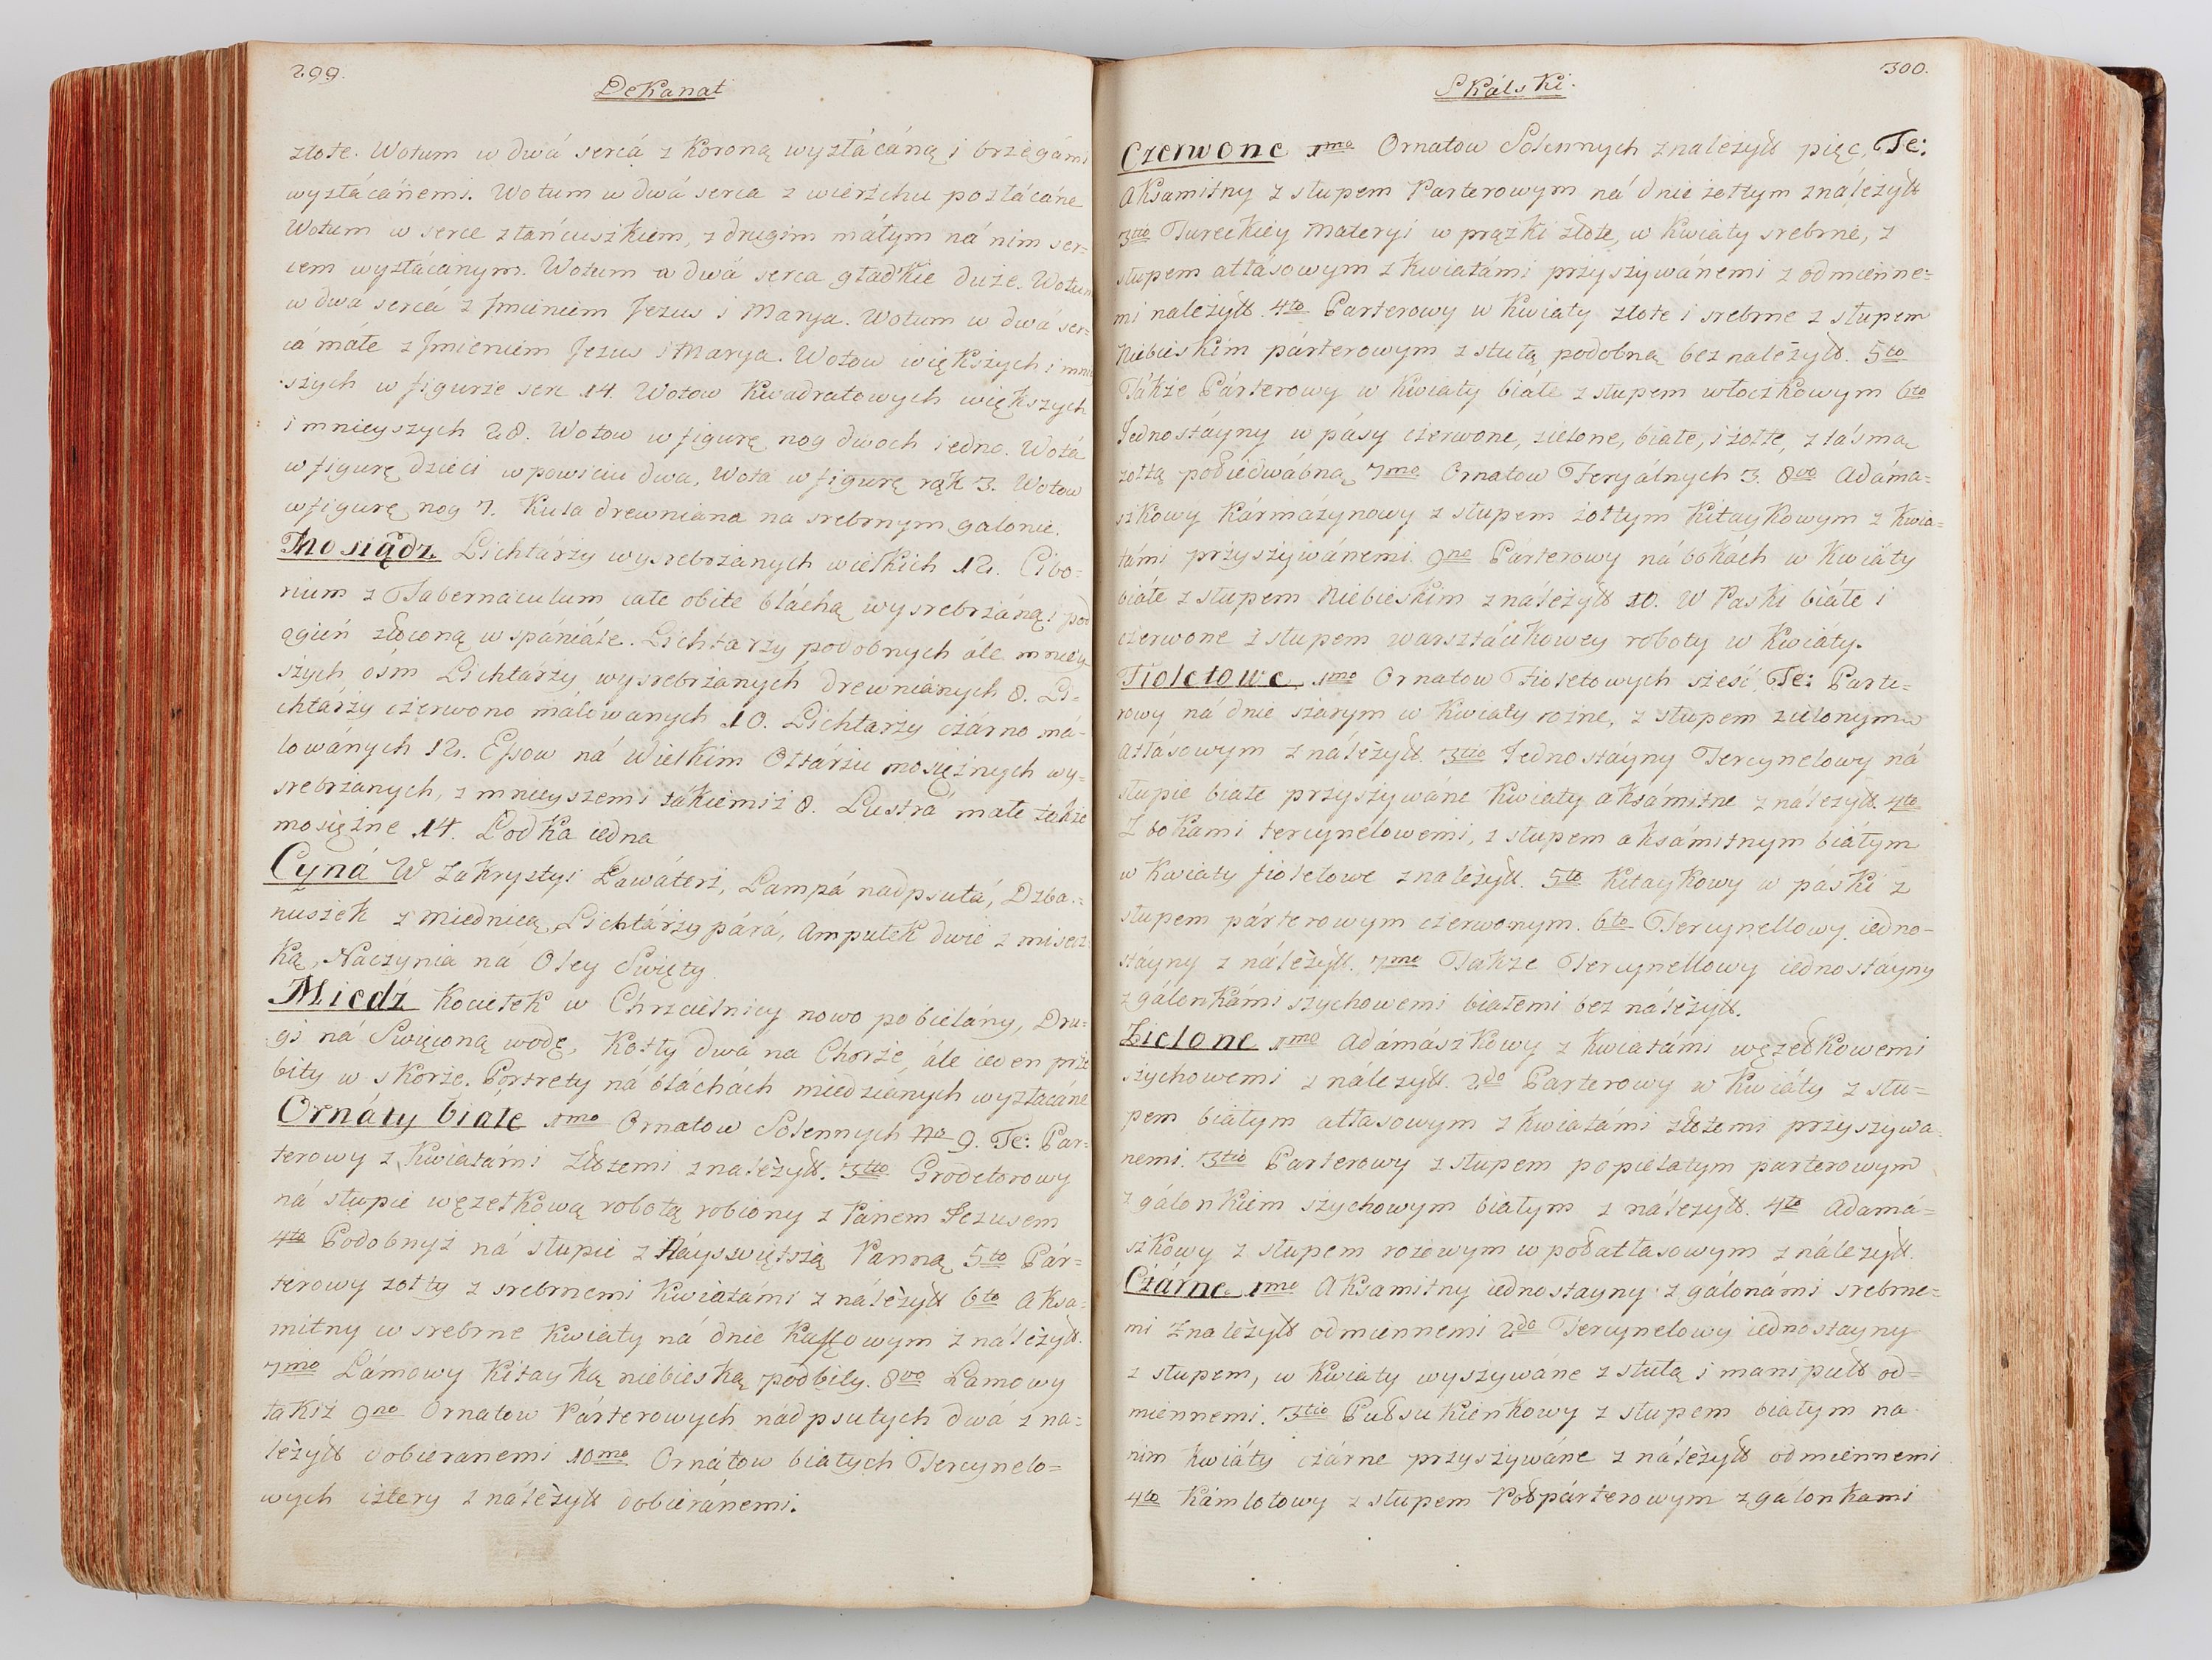 299.
Dekanat
złote. Wotum w dwá sercá z Koroną wyzłácáną i brzegámi
wyzłácánemi. Wotum w dwá serca z wierzchu pozłácáne
Wotum w serce z łáńcuszkiem, z drugim máłym ná nim ser-
cem wyzłácánym. Wotum w dwá serca gładkie duże. Wotum
w dwa sercá z Jmieniem Jezus i Marya. Wotum w dwá ser-
cá máłe z Jmieniem Jezus i Marya. Wotow większych i mni
szych w figurze serc 14. Wotow Kwadratowych większych
i mnieyszych 28. Wotow w figurę nog dwoch iedno. Wotá
w figurę dzieci w powiciu dwa, Wota w figurę rąk 3. Wotow
w figurę nog 7. Kula drewniana na srebrnym galonie.
Mosiądz Lichtárzy wysrebrzanych wielkich 12. Cibo=
rium z Tabernaculum całe obite bláchą wysrebrzáną i pod
ogień złoconą wspániáłe. Lichtarzy podobnych ále mniey
szych ośm Lichtárzy wysrebrzanych drewniánych 8. Li=
chtárzy czerwono málowanych 10. Lichtarzy czárno má-
lowánych 12. Essow ná Wielkim Ołtárzu mosiężnych wy=
srebrzanych, z mnieyszemi tákiemiż 8. Lustrá máłe także
mosiężne 14. Lodka iedna
Cyná W Zakrystyi Lawáterz, Lampá nadpsutá, Dzba-=
nuszek z miednicą, Lichtárzy párá, Ampułek dwie z misecz
ką, Naczynia ná Oley Swięty
Miedź Kociełek w Chrzcielnicy nowo pobielany, Dru=
gi ná Swięconą wodę, Kotły dwa na Chorze, ále ieden prze
bity w skorze. Portrety ná bláchách miedzianych wyzłacáne
Ornáty białe 1mo Ornatow Solennych No 9. Te: Par=
terowy z Kwiatámi złotemi z należyt. 3tio Grodetorowy
ná słupie węzełkową robotą robiony z Panem Jezusem
4to Podobnyż ná słupie z Náyswiętszą Panną 5to Pár=
terowy żołty z srebrnemi Kwiatámi z náleżyt 6to Aksa=
mitny w srebrne Kwiaty ná dnie Kassowym z náleżyt.
7mo Lámowy Kitayką niebieską podbity. 8vo Lamowy
takiż 9no Ornatow Párterowych nádpsutych dwá z na=
leżyt dobieranemi 10mo Ornátow białych Tercynelo=
wych cztery z náleżyt dobieránemi.
300.
Skálski.
Czerwone 1mo Ornatow Solennych z należyt pięc, Te:
Aksamitny z słupem Parterowym ná dnie żołtym z náleżyt
3tio Tureckiey Materyi w prążki złote, w Kwiaty srebrne, z
słupem atłásowym z Kwiatámi przyszywánemi z odmienne=
mi należyt. 4to Parterowy w Kwiaty złote i srebrne z słupem
Niebieskim párterowym z stułą podobną bez należyt. 5to
Tákże Párterowy w Kwiaty białe z słupem włoczkowym 6to
Jednostáyny w pásy czerwone, zielone, białe, i żołte, z tásmą
żołtą połiedwábną 7mo Ornatow Feryálnych 3. 8vo Adáma=
szkowy Kármázynowy z słupem żołtym Kitaykowym z Kwia=
támi przyszywánemi. 9no Párterowy ná bokách w Kwiáty
białe z słupem Niebieskim z náleżyt 10. W Paski białe i
czerwone z słupem warsztáćikowey roboty w Kwiáty.
Fioletowe 1mo Ornatow Fioletowych sześć, Te: Parte=
rowy ná dnie szarym w Kwiaty rożne, z słupem zielonym
atłásowym z náleżyt. 3tio Jednostáyny Tercynelowy ná
słupie białe przyszywáne Kwiaty aksámitne z náleżyt. 4to
Z bokami tercynelowemi, z słupem aksámitnym białym
w Kwiaty fioletowe z należyt. 5to Kitaykowy w páski z
słupem párterowym czerwonym. 6to Tercynellowy iedno-
stáyny z náleżyt. 7mo Także Tercynellowy iednostáyny
z gálonkámi szychowemi białemi bez náleżyt.
Zielone 1mo Adámászkowy z Kwiatámi węzełkowemi
szychowemi z náleżyt. 2do Parterowy w Kwiáty z słu=
pem białym atłasowym z Kwiatámi złotemi przyszywa=
nemi. 3tio Parterowy z słupem popielatym parterowym
z gálonkiem szychowym białym z náleżyt. 4to Adamá=
szkowy z słupem rożowym w połatłasowym z náleżyt.
Czárne 1mo Aksamitny iednostayny z gálonámi srebrne=
mi z należyt odmiennemi 2do Tercynelowy iednostayny
z słupem, w Kwiaty wyszywáne z stułą i manipuł od=
miennemi. 3tio Pułsukienkowy z słupem białym na
nim Kwiáty czárne przyszywáne z náleżyt odmiennemi
4to Kámlotowy z słupem Połpárterowym z gálonkami